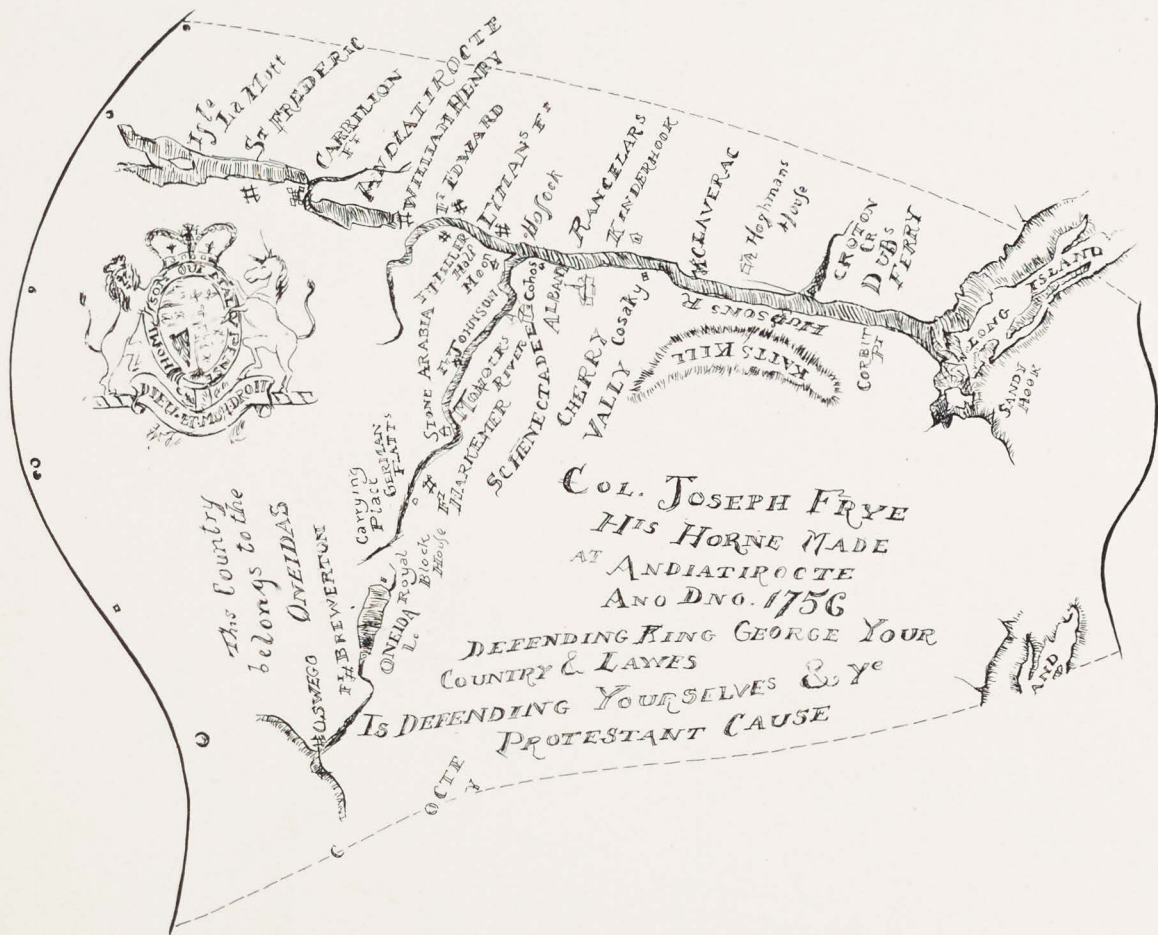 Isle
La Mott
ST FREDERIC
CARRILION
FT
ANDIATIROCTE
WILLIAM HENRY
FT EDWARD
LYMANS FT
Hosock
RANCELARS
KINDERHOOK
CLAVERAC
Hoghmans
House
CROTON
CR
DUBS
FERRY
LONG ISLAND
SANDY
HOOK
CORBITT
PT
HUDSONS R
KATTS KILL
Cosaky
CHERRY
VALLY
ALBANY
Cohos
SCHENECTADE
Half
Moon
FT MILLER
FT JOHNSON
STONE ARABIA
River
FT HARKEMER
GERMAN
FLATTS
Carrying
Place
Royal
Block
House
ONEIDA
Lc
FT BREWERTON
OSWEGO
This Country
belongs to the
ONEIDAS
HONI SOIT QUI MAL Y PENSE
DIEU ET MON DROIT
COL. JOSEPH FRYE
HIS HORNE MADE
AT ANDIATIROCTE
ANO DNO. 1756
DEFENDING KING GEORGE YOUR
COUNTRY & LAWES
IS DEFENDING YOURSELVES & Ye
PROTESTANT CAUSE
OCTE
AND